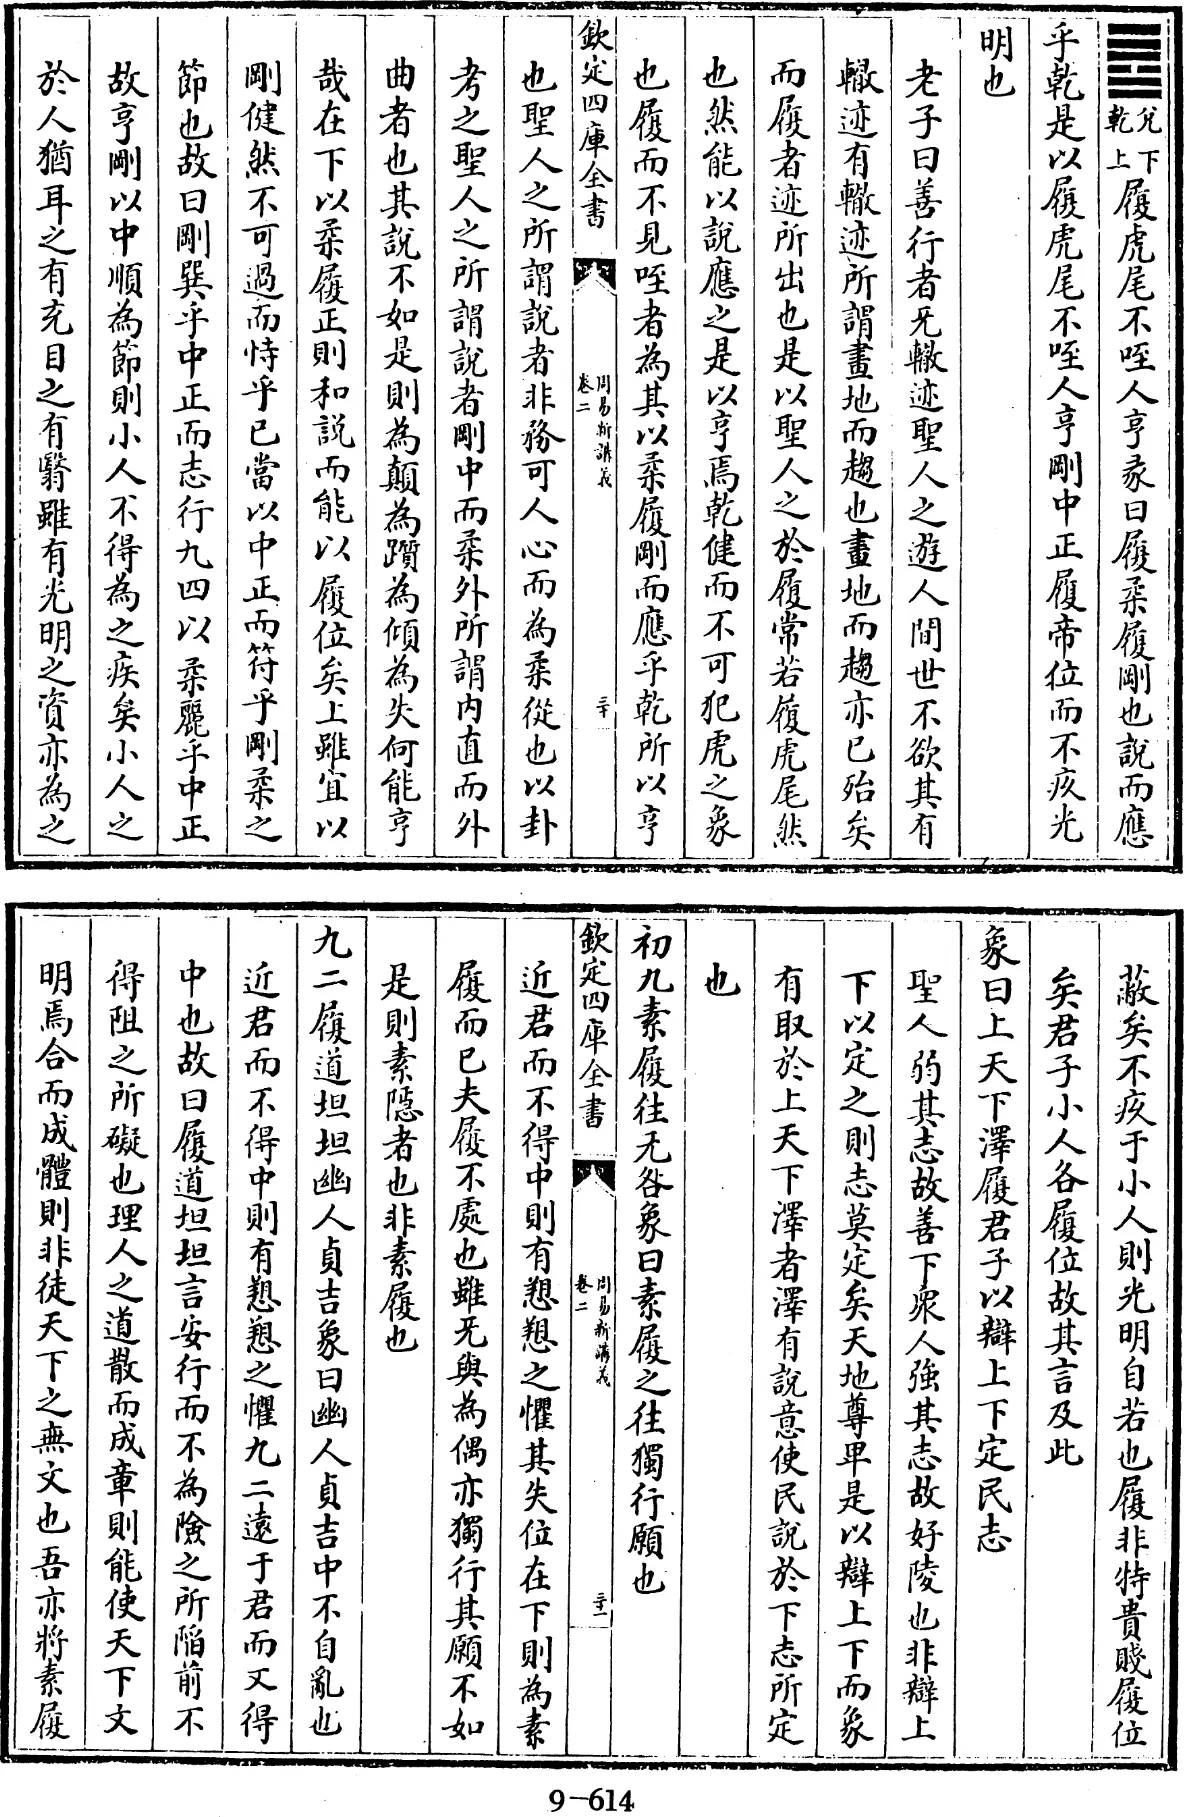 ䷉兌下乾上履虎尾不咥人亨彖曰履柔履剛也說而應
乎乾是以履虎尾不咥人亨剛中正履帝位而不疚光
明也
老子曰善行者无轍迹聖人之遊人間世不欲其有
轍迹有轍迹所謂畫地而趨也畫地而趨亦已殆矣
而履者迹所出也是以聖人之於履常若履虎尾然
也然能以說應之是以亨焉乾健而不可犯虎之象
也履而不見咥者為其以柔履剛而應乎乾所以亨
欽定四庫全書
周易新講義
卷二
二十
也聖人之所謂說者非務可人心而為柔從也以卦
考之聖人之所謂說者剛中而柔外所謂内直而外
曲者也其說不如是則為顛為躓為傾為失何能亨
哉在下以柔履正則和説而能以履位矣上雖宜以
剛健然不可過而恃乎已當以中正而符乎剛柔之
節也故曰剛巽乎中正而志行九四以柔麗乎中正
故亨剛以中順為節則小人不得為之疾矣小人之
於人猶耳之有充目之有翳雖有光明之資亦為之
蔽矣不疚于小人則光明自若也履非特貴賤履位
矣君子小人各履位故其言及此
象曰上天下澤履君子以辯上下定民志
聖人弱其志故善下衆人強其志故好陵也非辯上
下以定之則志莫定矣天地尊卑是以辯上下而象
有取於上天下澤者澤有說意使民說於下志所定
也
初九素履往无咎象曰素履之往獨行願也
欽定四庫全書
周易新講義
卷二
二十一
近君而不得中則有愬愬之懼其失位在下則為素
履而已夫履不處也雖无與為偶亦獨行其願不如
是則素隱者也非素履也
九二履道坦坦幽人貞吉象曰幽人貞吉中不自亂也
近君而不得中則有愬愬之懼九二遠于君而又得
中也故曰履道坦坦言安行而不為險之所陷前不
得阻之所礙也理人之道散而成章則能使天下文
明焉合而成體則非徒天下之無文也吾亦將素履
9-614